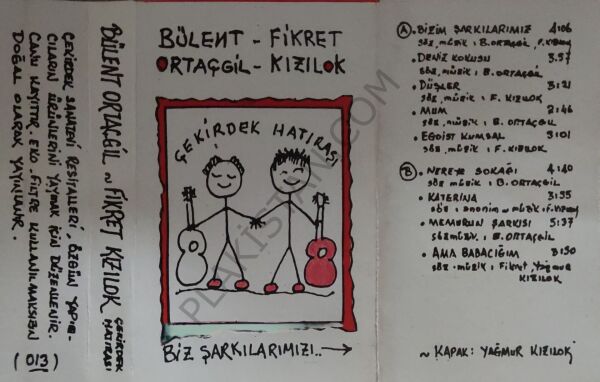 ÇEKİRDEK SANATEVİ RESİTALLERİ, ÖZGÜN YAPIM-
CILARIN ÜRÜNLERİNİ YAYMAK İÇİN DÜZENLENİR.
CANLI KAYITTIR. EKO, FİLTRE KULLANILMAKSIZIN
DOĞAL OLARAK YAYINLANIR.
(013)
BÜLENT ORTAÇGİL ~ FİKRET KIZILOK
ÇEKİRDEK
HATIRASI
BÜLENT - FİKRET
ORTAÇGİL - KIZILOK
ÇEKİRDEK HATIRASI
BİZ ŞARKILARIMIZI..→
A. BİZİM ŞARKILARIMIZ 4:06
SÖZ, MÜZİK: B. ORTAÇGİL, F. KIZILOK
• DENİZ KOKUSU 3:57
SÖZ, MÜZİK: B. ORTAÇGİL
• DÜŞLER 3:21
SÖZ, MÜZİK: F. KIZILOK
• MUM 2:46
SÖZ, MÜZİK: B. ORTAÇGİL
• EGOİST KUMSAL 3:01
SÖZ, MÜZİK: F. KIZILOK
B. NEREYE SOKAĞI 4:40
SÖZ, MÜZİK: B. ORTAÇGİL
• KATERİNA 3:55
SÖZ: ANONİM ~ MÜZİK: F. KIZILOK
• MEMURUN ŞARKISI 5:37
SÖZ, MÜZİK: B. ORTAÇGİL
• AMA BABACIĞIM 3:50
SÖZ-MÜZİK: Fikret, Yağmur
KIZILOK
~ KAPAK: YAĞMUR KIZILOK
PLAKISTAN.COM